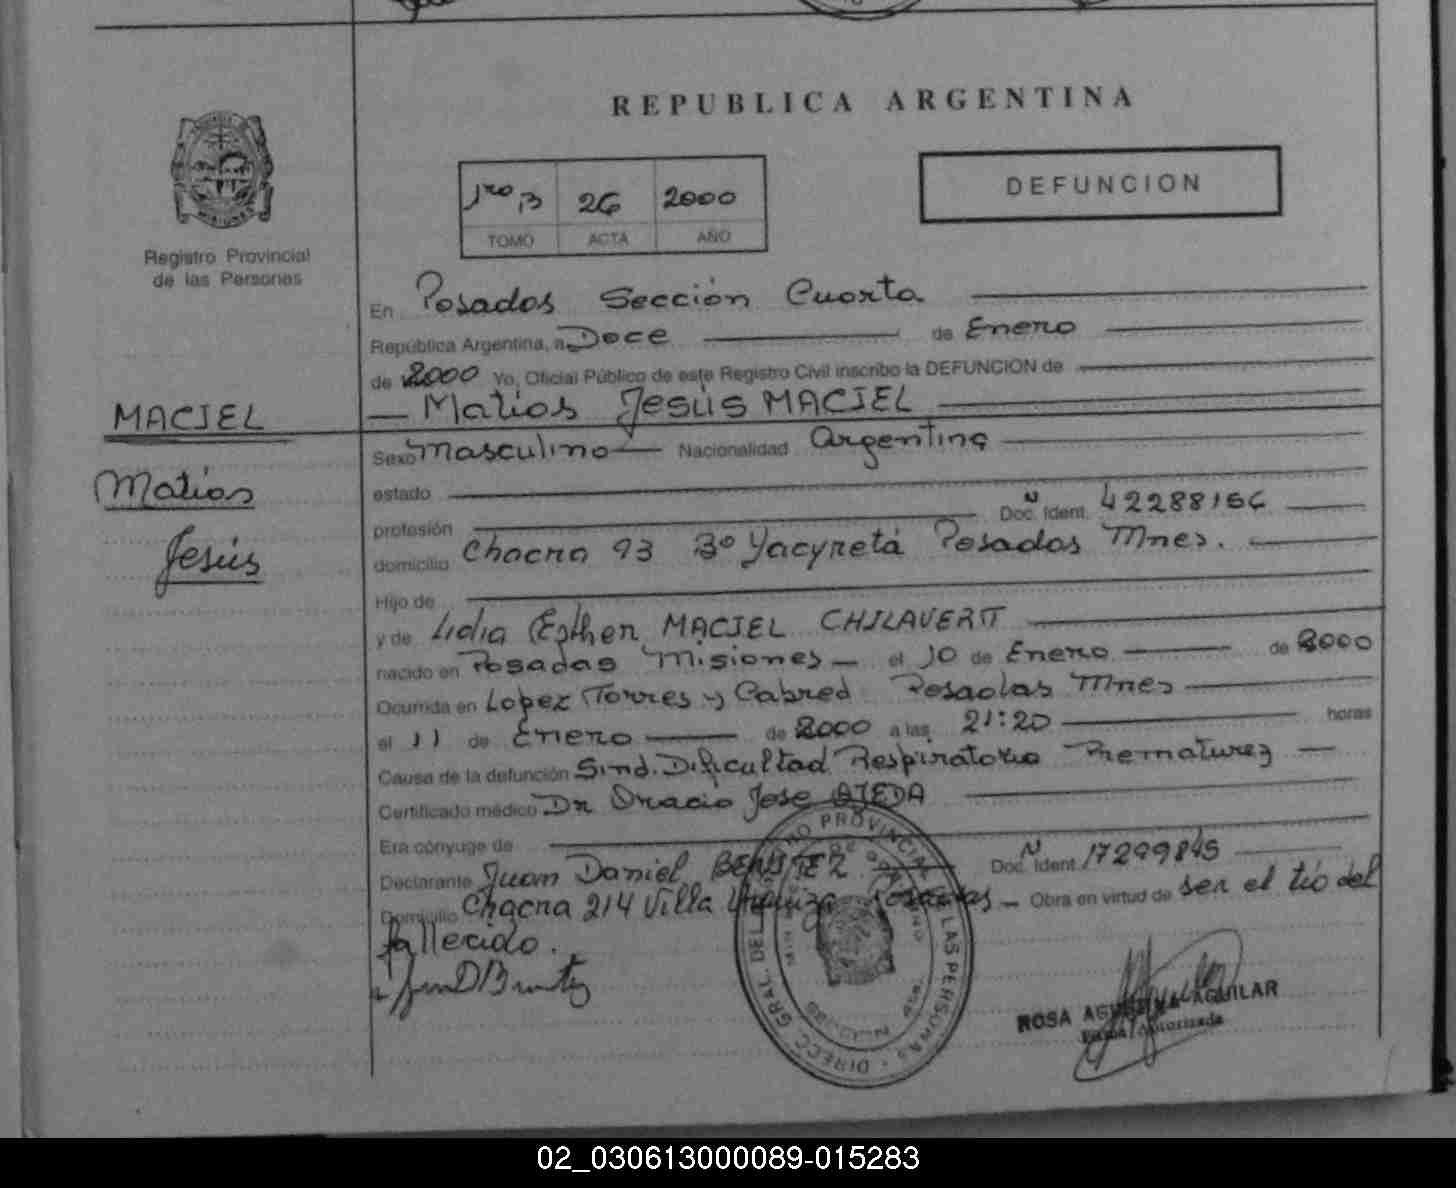 REPUBLICA ARGENTINA
Registro Provincial
de las Personas
1ro B 26 2000
TOMO ACTA AÑO
DEFUNCION
En Posadas Sección Cuarta
República Argentina, a Doce de Enero
de 2000 Yo, Oficial Público de este Registro Civil inscribo la DEFUNCION de
Matias Jesús MACIEL
MACIEL
Matias
Jesús
Sexo Masculino Nacionalidad Argentina
estado
profesión Doc. Ident. Nº 42288156
domicilio Chacra 93 Bº Yacyretá Posadas Mnes.
Hijo de
y de Lidia Esther MACIEL CHILAVERT
nacido en Posadas Misiones el 10 de Enero de 2000
Ocurrida en Lopez Torres y Cabred Posadas Mnes
el 11 de Enero de 2000 a las 21:20 horas
Causa de la defunción Sind. Dificultad Respiratoria Prematurez
Certificado médico Dr Oracio Jose OJEDA
Era cónyuge de
Declarante Juan Daniel BENITEZ Doc. Ident. N 17299845
Domicilio Chacra 214 Villa Urquiza Posadas Obra en virtud de ser el tío del
fallecido.
DIRECC. GRAL. DEL REGISTRO PROVINCIAL DE LAS PERSONAS
ROSA AGUILAR
Firma Autorizada
02_030613000089-015283